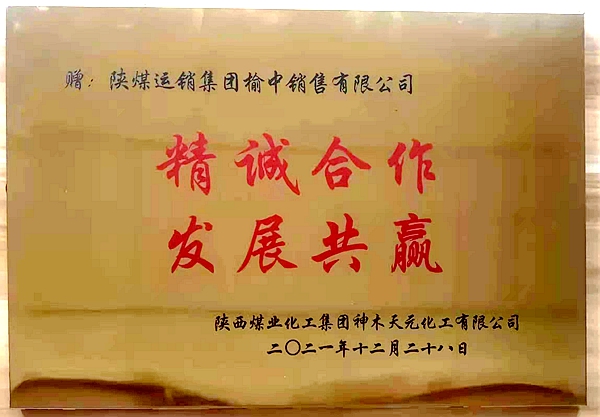 赠：陕煤运销集团榆中销售有限公司
精诚合作
发展共赢
陕西煤业化工集团神木天元化工有限公司
二〇二一年十二月二十八日